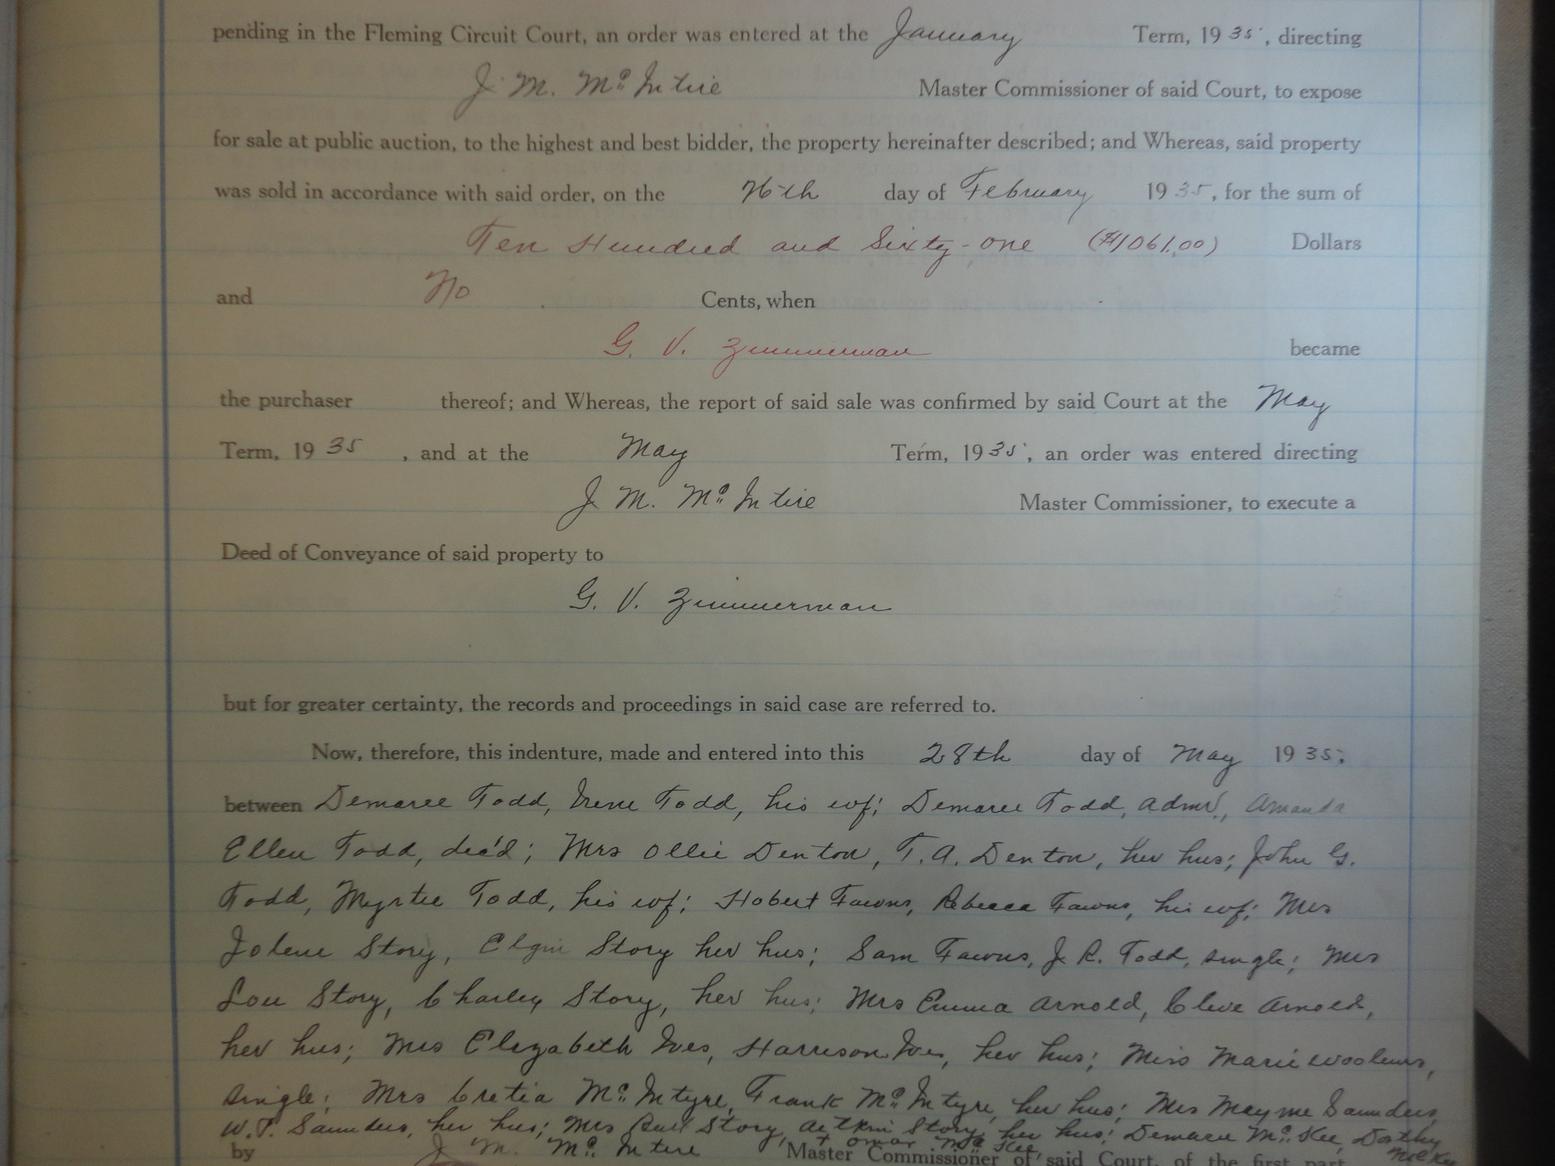 pending in the Fleming Circuit Court, an order was entered at the January Term, 1935, directing
J. M. McIntire Master Commissioner of said Court, to expose
for sale at public auction, to the highest and best bidder, the property hereinafter described; and Whereas, said property
was sold in accordance with said order, on the 26th day of February 1935, for the sum of
Ten Hundred and Sixty-one ($1061.00) Dollars
and No Cents, when
G. V. Zimmerman became
the purchaser thereof; and Whereas, the report of said sale was confirmed by said Court at the May
Term, 1935, and at the May Term, 1935, an order was entered directing
J. M. McIntire Master Commissioner, to execute a
Deed of Conveyance of said property to
G. V. Zimmerman
but for greater certainty, the records and proceedings in said case are referred to.
Now, therefore, this indenture, made and entered into this 28th day of May 1935;
between Demaree Todd, Irene Todd, his wf; Demaree Todd, admr., Amanda
Ellen Todd, dec'd; Mrs Ollie Denton, T. A. Denton, her hus; John G.
Todd, Myrtle Todd, his wf; Hobert Fawns, Rebecca Fawns, his wf; Mrs
Jolene Story, Elgin Story her hus; Sam Fawns, J. R. Todd, single; Mrs
Lou Story, Charley Story, her hus; Mrs Emma Arnold, Cleve Arnold,
her hus; Mrs Elizabeth Ives, Harrison Ives, her hus; Miss Marie
single; Mrs Cretia McIntyre, Frank McIntyre, her hus; Mrs Mayme Saunders,
W. T. Saunders, her hus; Mrs Story, Story, her hus; Demaree McKee, Dorthy McKee
+ Omar McKee,
by J. M. McIntire Master Commissioner of said Court, of the first part